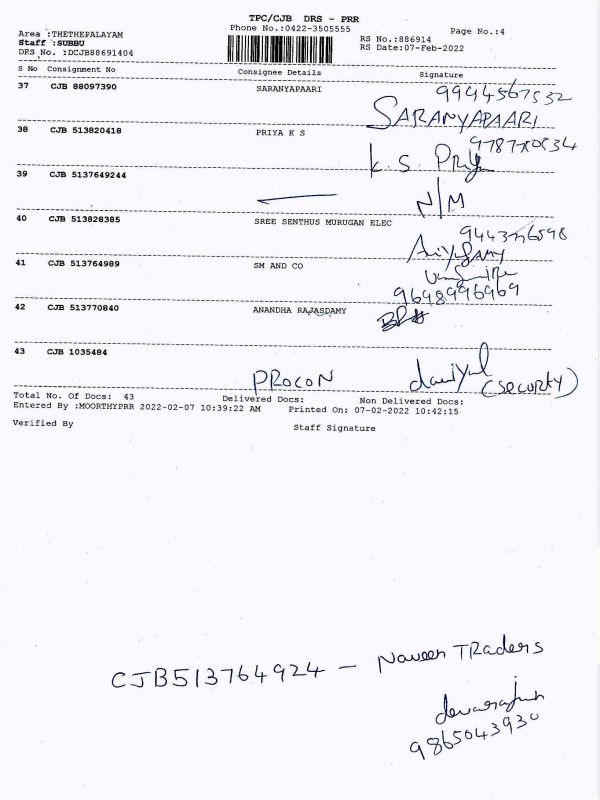 TPC/CJB DRS - PRR
Phone No.:0422-3505555
Page No.:4
Area :THETHEPALAYAM
Staff :SUBBU
DRS No. :DCJB88691404
RS No.:886914
RS Date:07-Feb-2022
S No Consignment No Consignee Details Signature
37 CJB 88097390 SARANYAPAARI 9994567532
SARANYAPAARI
38 CJB 513820418 PRIYA K S
K S Priya
39 CJB 5137649244
N/M
40 CJB 513828385 SREE SENTHUS MURUGAN ELEC
41 CJB 513764989 SM AND CO
9698996969
42 CJB 513770840 ANANDHA RAJASDAMY
43 CJB 1035484
PROCON daniyul (Securty)
Total No. Of Docs: 43 Delivered Docs: Non Delivered Docs:
Entered By :MOORTHYPRR 2022-02-07 10:39:22 AM Printed On: 07-02-2022 10:42:15
Verified By Staff Signature
CJB513764924 - Naveen TRaders
devarajun
9865043930